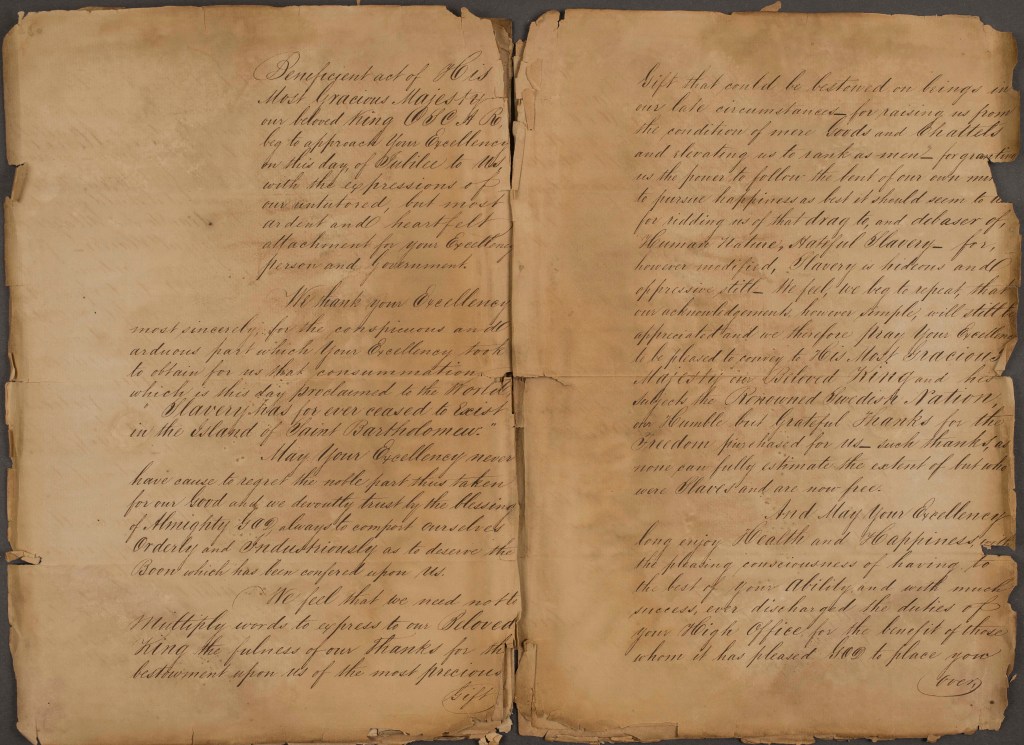 Beneficient act of His
Most Gracious Majesty
our beloved King OSCAR,
beg to approach Your Excellency
on this day, of Jubilee to Us,
with the expressions of
our untutored, but most
ardent and heartfelt
attachment for your Excellency
person and Government.
We thank your Excellency
most sincerely, for the conspicuous and
arduous part which Your Excellency took
to obtain for us that consummation.
which is this day proclaimed to the World
"Slavery has for ever ceased to exist
in the Island of Saint Bartholomew."
May Your Excellency never
have cause to regret the noble part thus taken
for our Good and we devoutly trust by the blessing
of Almighty GOD always to comport ourselves
Orderly and Industriously as to deserve the
Boon which has been confered upon Us.
We feel that we need not to
Multiply words to express to our Beloved
King the fulness of our Thanks for the
bestowment upon Us of the most precious
Gift
Gift that could be bestowed on beings in
our late circumstances_ for raising us from
the condition of mere Goods and Chattels
and elevating us to rank as men_ for granting
us the power to follow the bent of our own
to pursue happiness as best it should seem to
for ridding us of that drag to, and debaser of,
Human Nature, Hateful Slavery_ for,
however modified, Slavery is hideous and
oppressive still_ We feel, we beg to repeat, that
our acknowledgements, however simple, will still be
appreciated and we therefore pray Your Excellency
to be pleased to convey to His Most Gracious
Majesty our Beloved King and his
Subjects the Renowned Swedish Nation,
our Humble but Grateful Thanks for the
Freedom purchased for us_ such thanks, as
none can fully estimate the extent of but who
were Slaves and are now free.
And May Your Excellency
long enjoy Health and Happiness with
the pleasing consciousness of having to
the best of your Ability and with much
success, ever discharged the duties of
your High Office for the benefit of those
whom it has pleased GOD to place you
over,